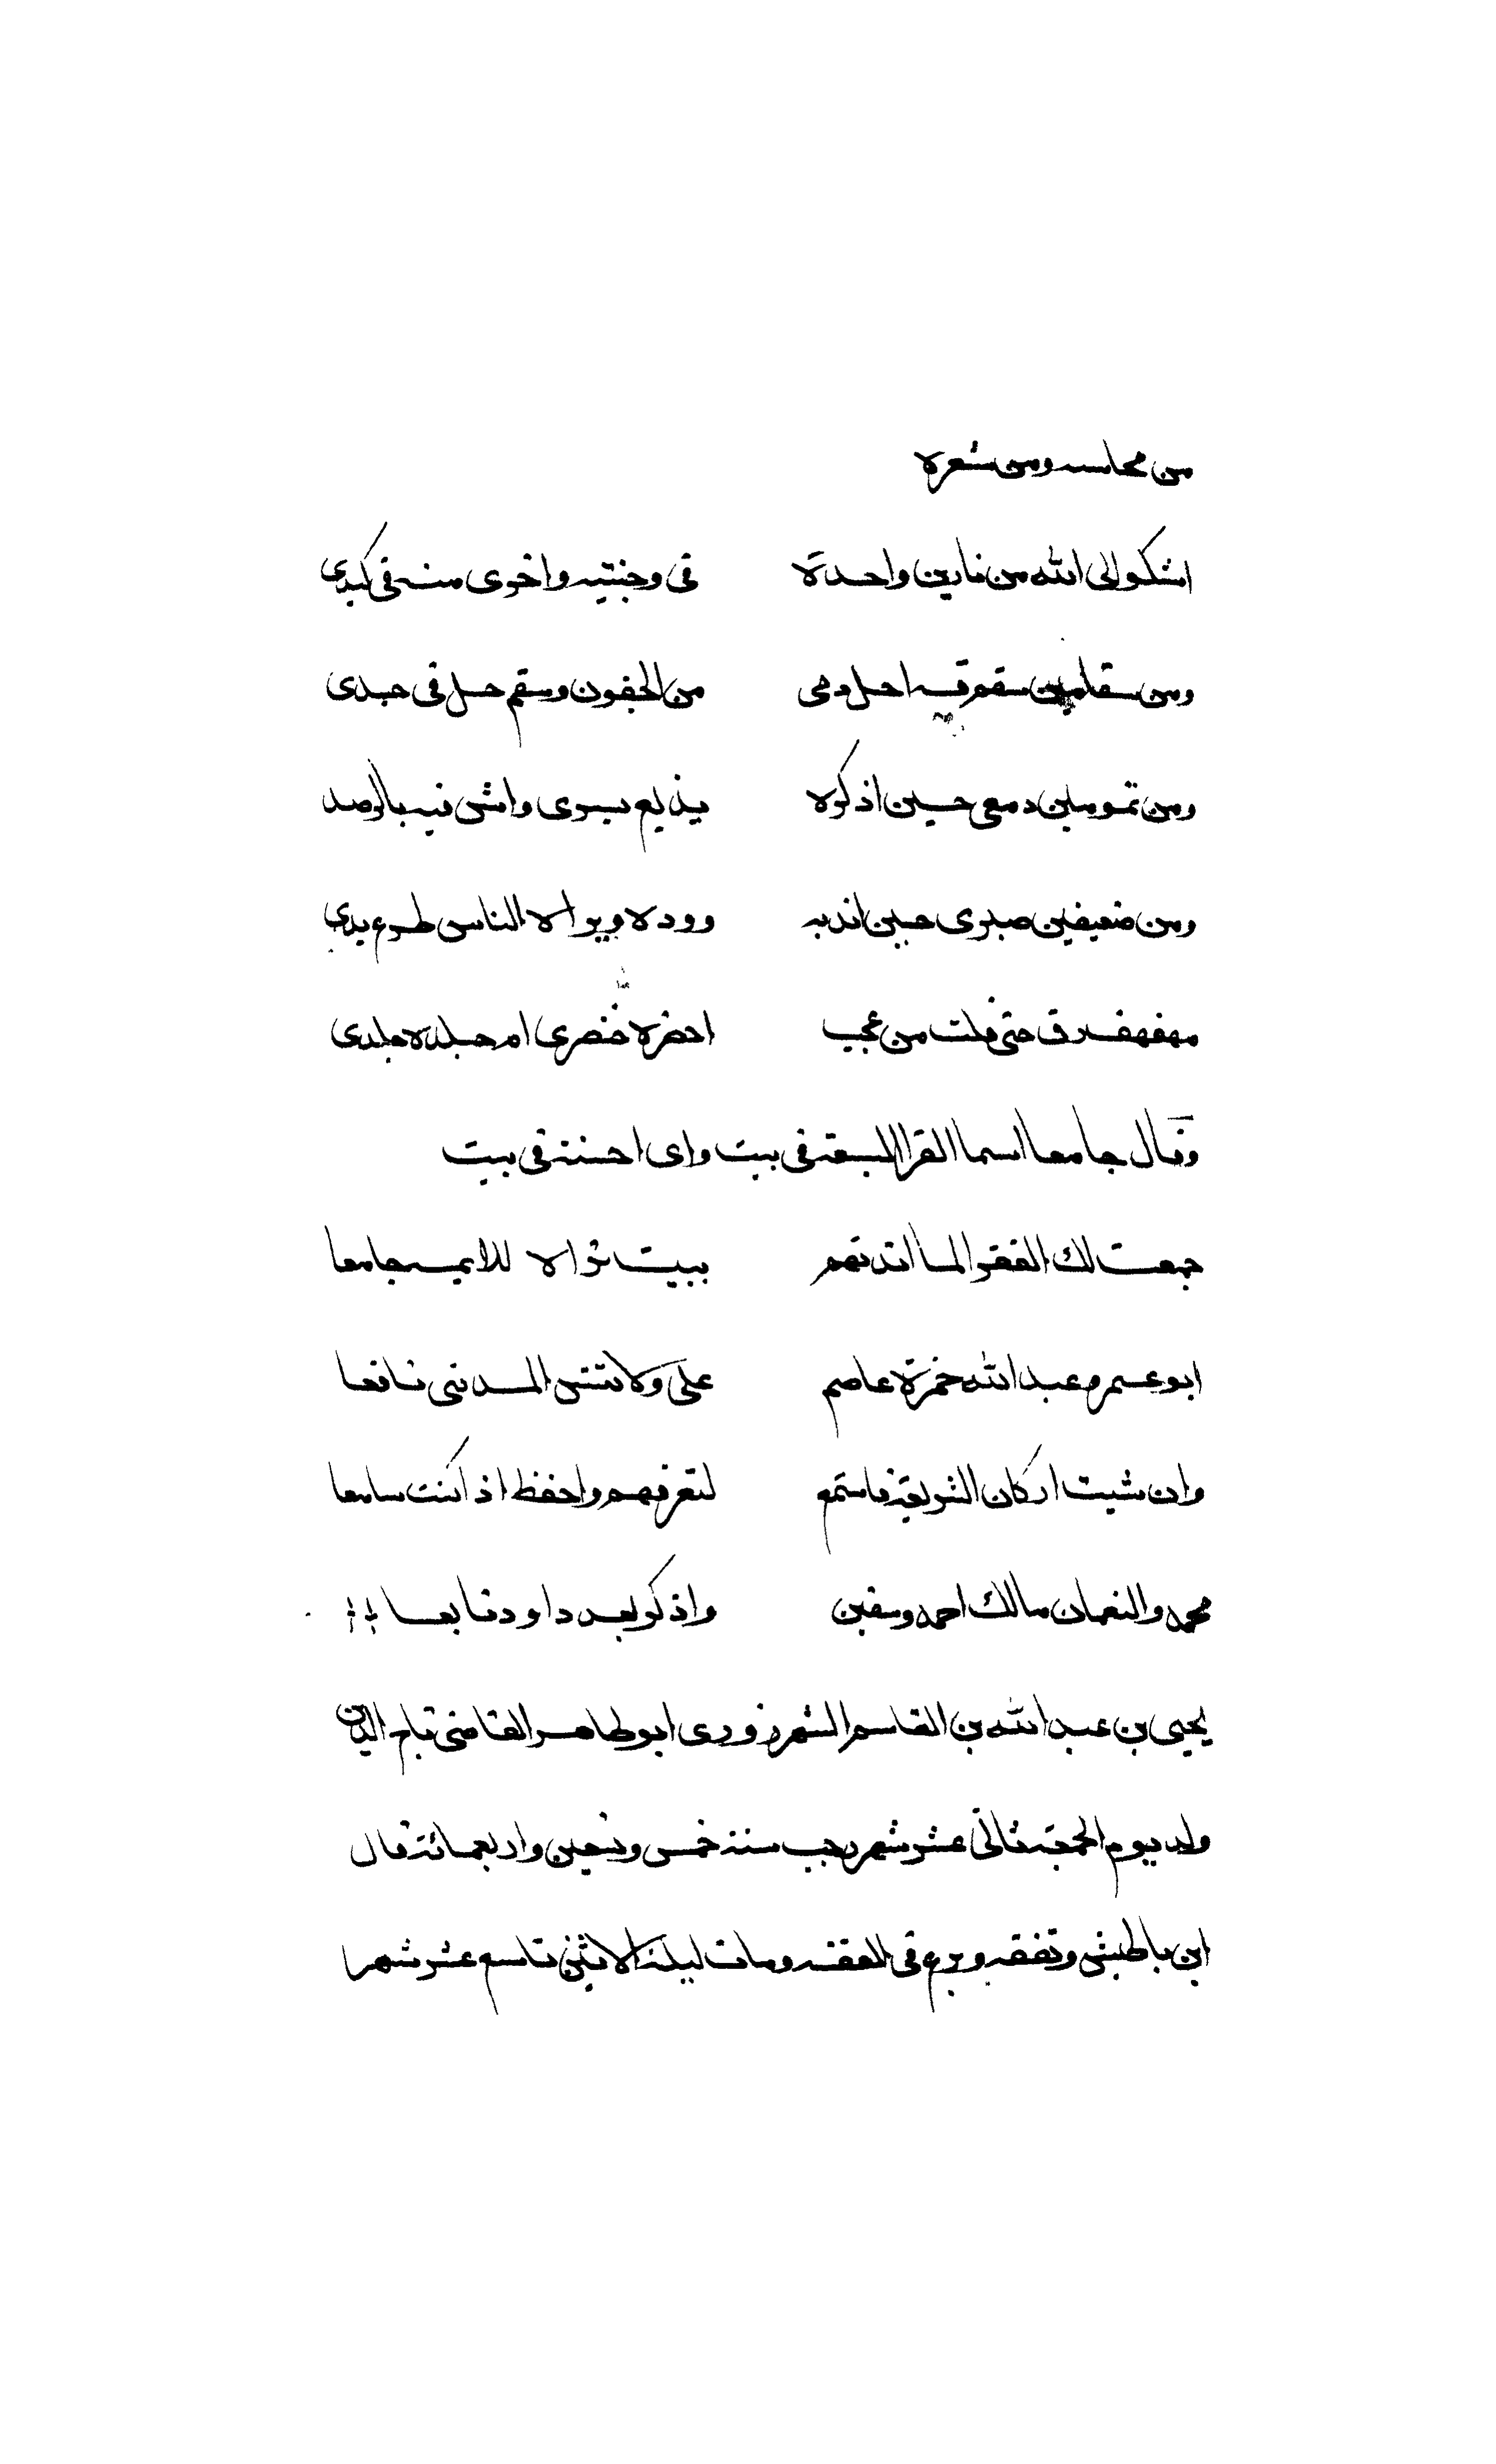 من محاسنه ومن شعره
اشكوا الى الله من نارين واحدة في وجنتيه واخرى منه في كبدي
ومن سقامين سقم قد احل دمي من الجفون وسقم حل في جسدي
ومن نمومين دمعي حين اذكره يذيع سري وواشي فيه بالرصد
ومن ضعيفين صبري حين اندبه ووده ويراه الناس طوع يدي
مهفهف رق حتى قلت من عجب اخصره خنصري ام جلده جلدي
وقال جامعا اسما القرا السبعة في بيت واى احسنه في بيت
جمعت لك القرا لما اردتهم ببيت تراه للايمة جامعا
ابو عمرو عبد الله حمزة عاصم علي ولا تنس المديني نافعا
وان شيت اركان الشريعة فاستمع لتعرفهم واحفظ اذا كنت سامعا
محمد والنعمان مالك احمد وسفين واذكر بعد داود تابعا
يحيى بن عبد الله بن القاسم الشهرزوري ابو طاهر القاضي تاج الدين
ولد يوم الجمعة ثاني عشر شهر رجب سنة خمس وتسعين واربعمائة قال
ابن باطيش وتفقه وبرع في الفقه ومات ليلة الاثنين تاسع عشر شهر